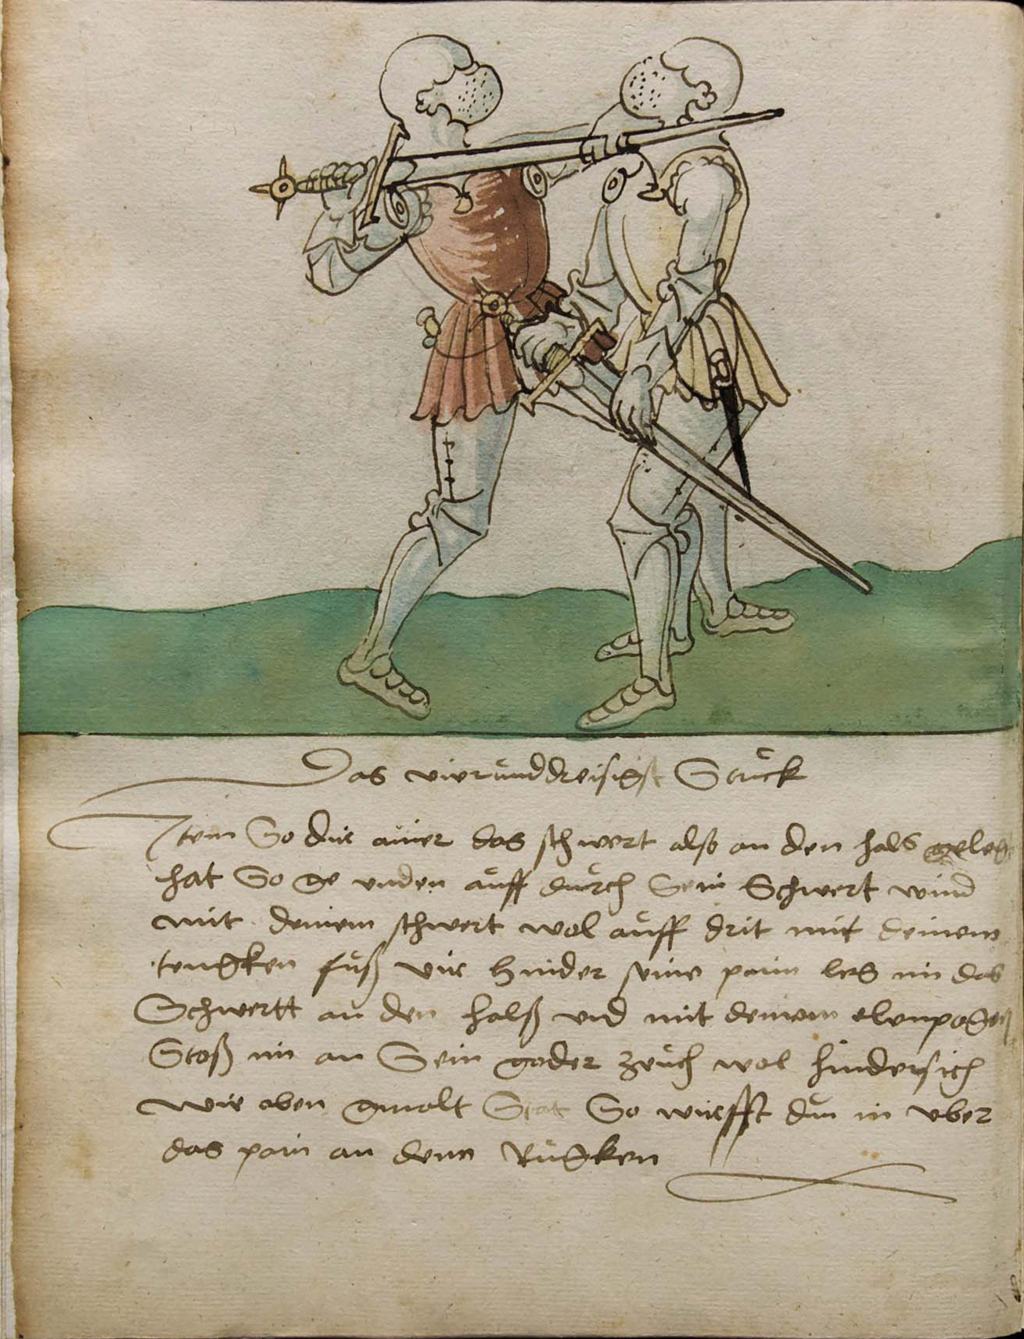 Das vierůnddreisigst Stůck
Item So dir ainer das schwert also an den hals geleg
hat So ge vnden aůff důrch Sein Schwert wind
mit deinem schwert wol aůff drit mit deinem
lengken fůß vir hinder seine pain leg im das
Schwertt an den halß vnd mit deinem elenpogen
Stoß in an Sein goder zeůch wol hindersich
wie oben gmalt Stat So wirffst dun in vber
das pain an denn Růgken